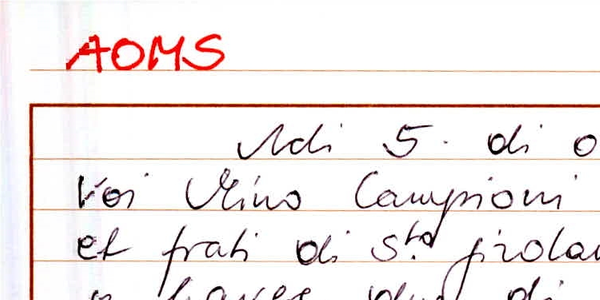 AOMS
Adi 5. di
Voi Mino Campioni
et frati di S.to
di